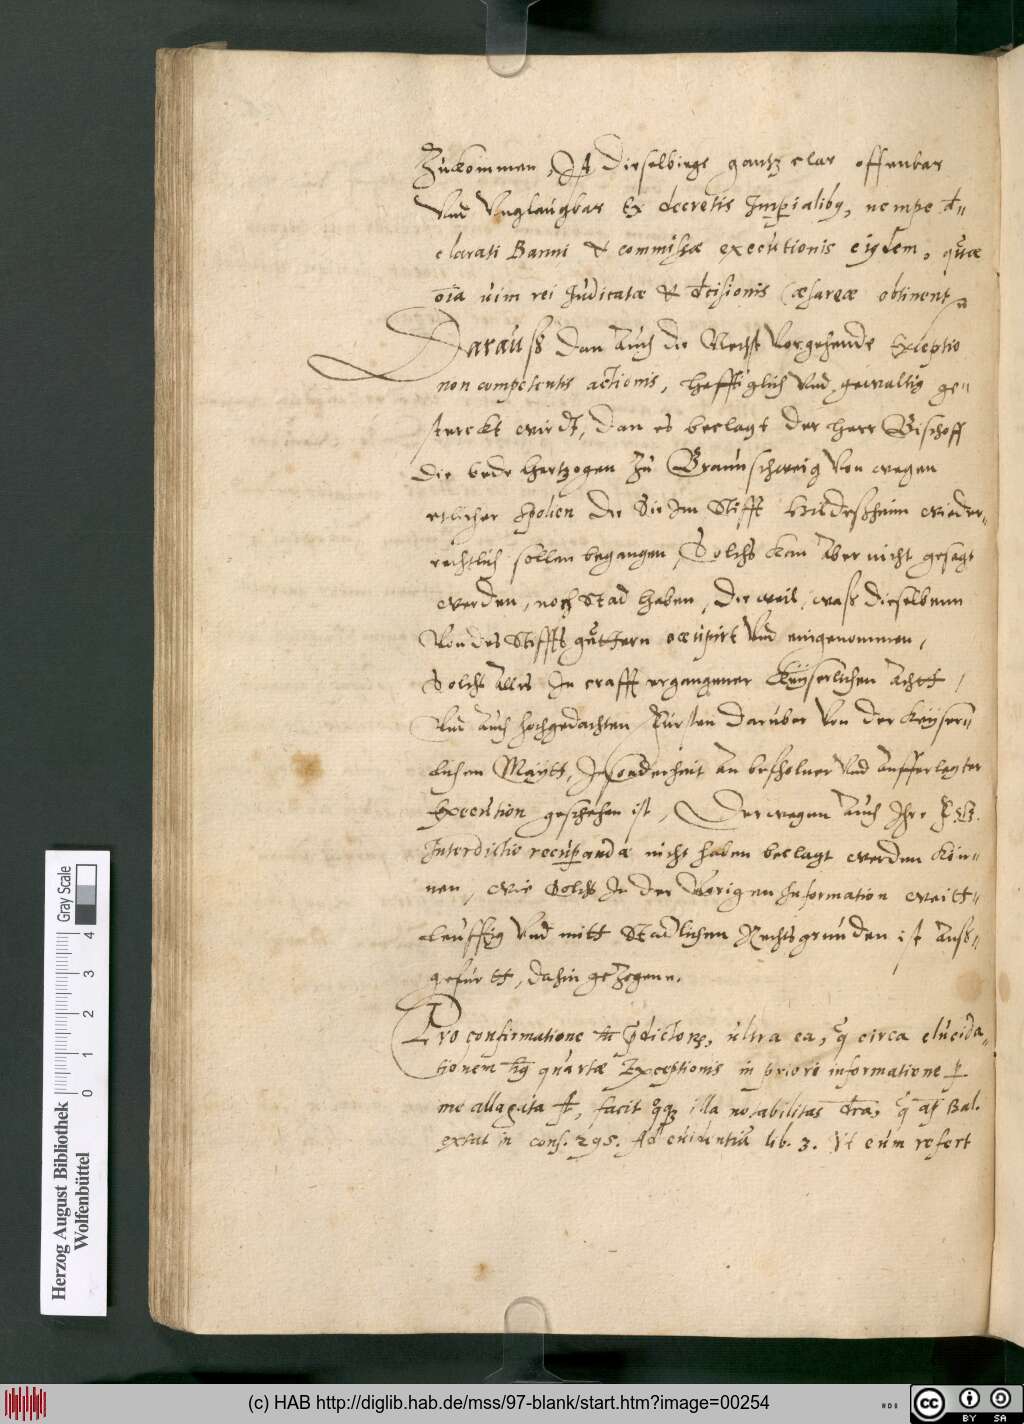 Zukommen, Ist dieselbiege gantz clar offenbar
Vnd Vnglaugbar Ex decretis Imperialibꝯ, nempe d-
clarati Banni & commissæ executionis eiꝰdem, quæ
oīa uim rei Iudicatæ & dcisionis Cæsareæ obtinent
Darauß dan Auch die Nechst Vorgehende Exceptio
non competentis actionis, hefftiglich Vnd gewaltig ge-
sterckt wirdt, Dan es beclagt der herr Bischoff
die bede hertzogen zu Braunschweig Von wegen
etlicher spolien die Sie Im Stifft Hildeßheim wieder-
rechtlich sollen begangen, Solchs kan Aber nicht gesagt
werden, noch Stad haben, die weil, waß dieselbenn
Von des Stiffts guthern occupirt Vnd eingenommen,
Solchs Alles In crafft ergangener Keyserlichen Achtt,
Vnd Auch hochgedachten Fürsten daruber Von der Keyser-
lichen Maytt, Insonderheit An befholner Vnd Aufferlegter
Execution geschehen ist, Derwegen Auch Ihre F.
Interdicto recuperandæ nicht haben beclagt werden kön-
nen, wie Solchs In der Vorigen Information weitt-
leuffig Vnd mitt Stadlichen Rechtsgrunden ist Auß-
gefurtt, dahin gezogenn.
Pro confirmatione pdictorꝝ, ultra ea, q circa elucida-
tionem quartæ Exceptionis in priore informatione p
me allegata st, facit illa notabilitas dra, q ap Bal.
extat in cons. 295. Ad euidentiā lib. 3. Vt eum refert
Herzog August Bibliothek
Wolfenbüttel
0 1 2 3 4
Gray Scale
(c) HAB http://diglib.hab.de/mss/97-blank/start.htm?image=00254
cc BY SA